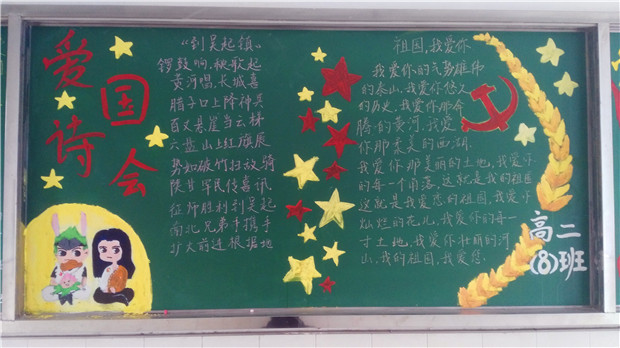 爱国
诗会
“到吴起镇”
锣鼓响,秧歌起
黄河唱,长城喜
腊子口上降神兵
百丈悬崖当云梯
六盘山上红旗展
势如破竹扫敌骑
陕甘军民传喜讯
征师胜利到吴起
南北兄弟手携手
扩大前进根据地
祖国,我爱你
我爱你的气势雄伟
的泰山,我爱你悠久
的历史,我爱你那奔
腾的黄河,我爱
你那柔美的西湖.
我爱你那美丽的土地,我爱你
的每一个角落,这就是我的祖国
这就是我爱的祖国,我爱你
灿烂的花儿,我爱你的每一
寸土地,我爱你壮丽的河
山,我的祖国,我爱您.
高二
(8)班